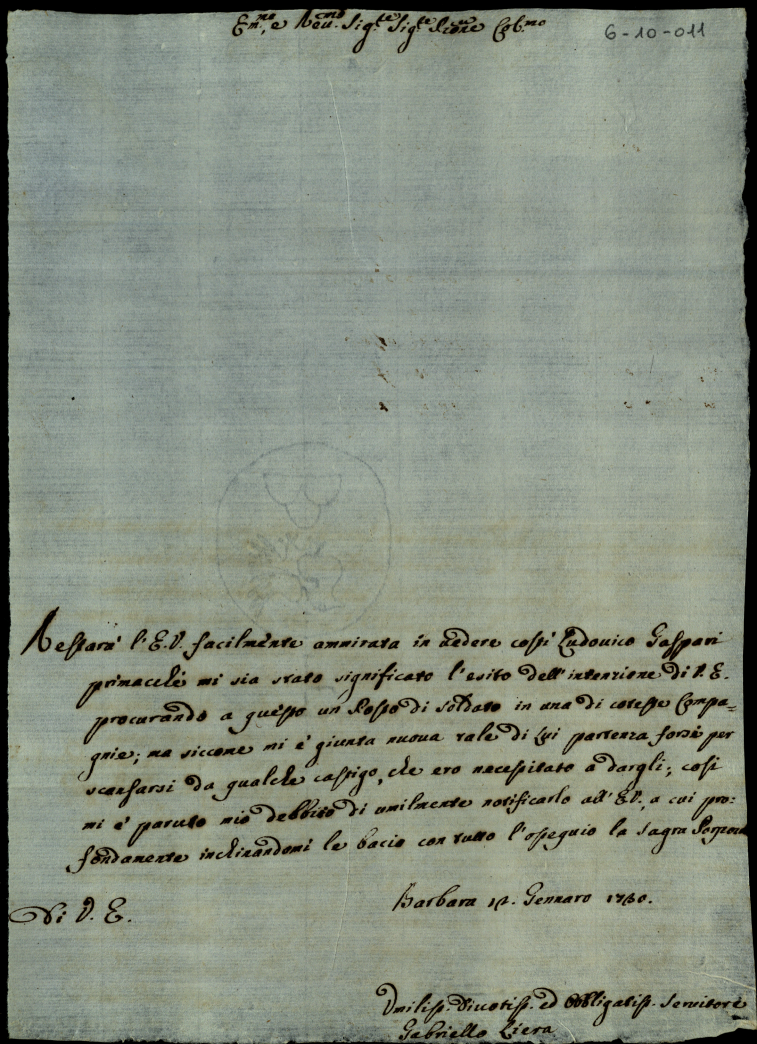 Em.mo, e Reu.mo Sig.re Sig.re Pr̃one Col.mo
6-10-011
Restarà l'E.V. facilmente ammirata in vedere costì Ludovico Gaspari
primacchè mi sia stato significato l'esito dell'intenzione di V.E.
procurando a questo un Posto di soldato in una di coteste Compa=
gnie; ma siccome mi è giunta nuova tale di lui partenza forse per
scansarsi da qualche castigo, che ero necessitato a dargli; così
mi è paruto mio debbito di umilmente notificarlo all'E.V., a cui pro:
fondamente inchinandomi le bacio con tutto l'ossequio la Sagra Porpora
Di V.E.
Barbara Gennaro
Umiliss. Divotiss. ed Obbligatiss. Servitore
Gabriello